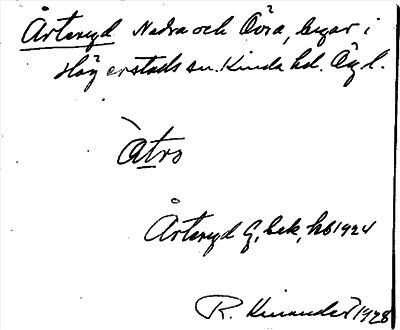 Årteryd Nedra och Övra, byar i
Hägerstads sn. Kinda hd. Ög l.
Årteryd G, bek, hb 1924
R. Kinander 1928